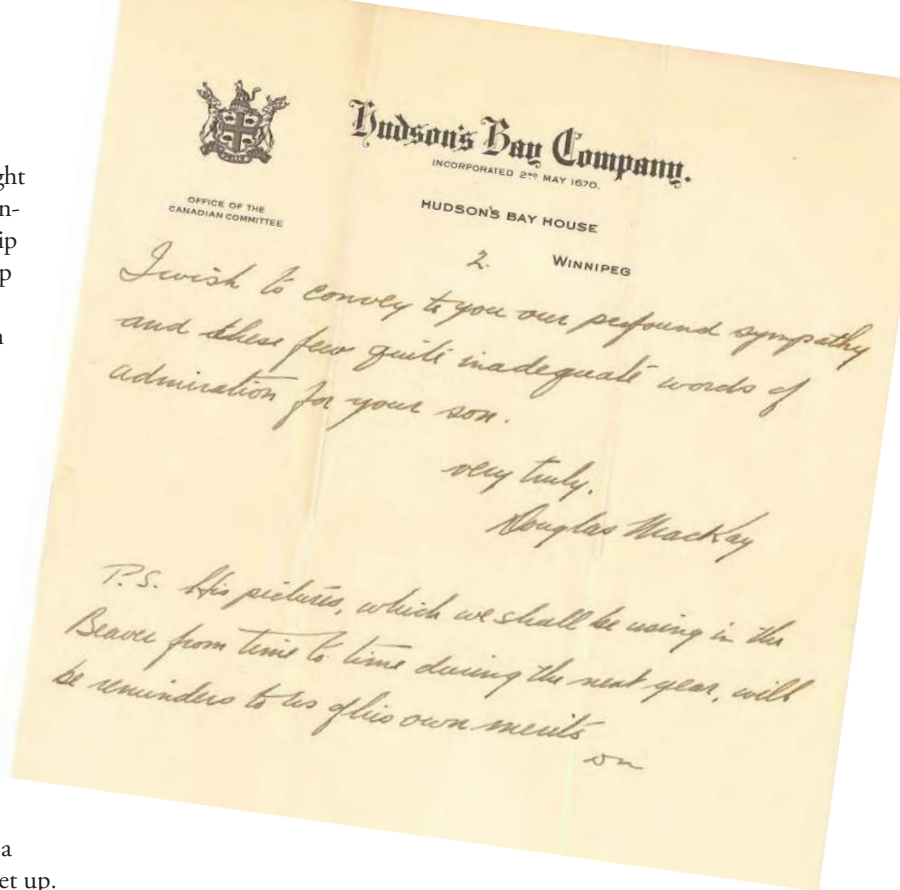 ght
n-
ip
p
n
Hudson's Bay Company.
INCORPORATED 2ND MAY 1670.
OFFICE OF THE
CANADIAN COMMITTEE
HUDSON'S BAY HOUSE
2. WINNIPEG
I wish to convey to you our profound sympathy
and these few quite inadequate words of
admiration for your son.
very truly,
Douglas MacKay
P.S. His pictures, which we shall be using in the
Beaver from time to time during the next year, will
be reminders to us of his own merits
on
a
et up.